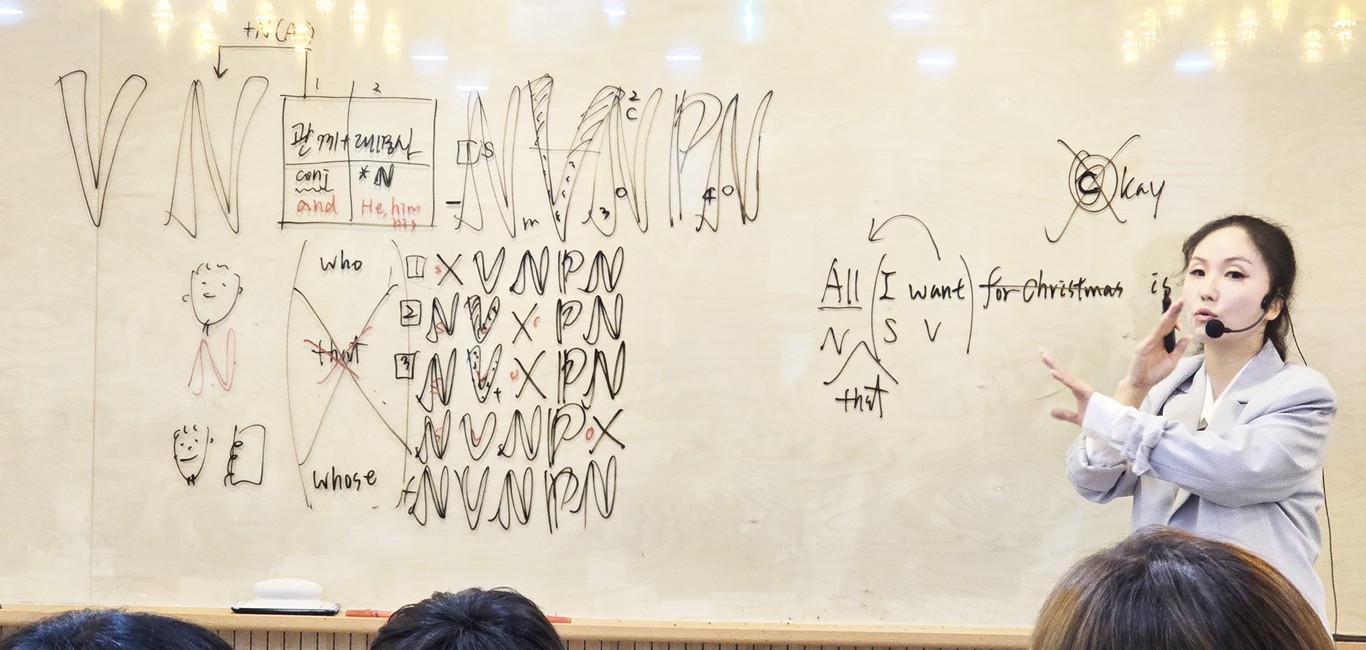 +N(A)
V N
1 2
관계+대명사
conj *N
and He, him
his
1 S N V N P N
2
C
m 3 O 4 O
who
that
whose
1 s X V N P N
2 N V X c P N
3 N V + o X P N
N V N P o X
+ N V N P N
N
Okay
All (I want) for Christmas is
N S V
that